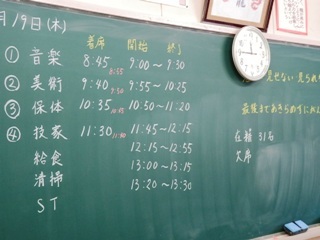 月19日(木)
着席 開始 終了
① 音楽 8:45 8:55 9:00~9:30
② 美術 9:40 9:50 9:55~10:25
③ 保体 10:35 10:45 10:50~11:20
④ 技家 11:30 11:40 11:45~12:15
給食 12:15~12:55
清掃 13:00~13:15
ST 13:20~13:30
見せない 見られ
最後まであきらめずに
在籍 31名
欠席